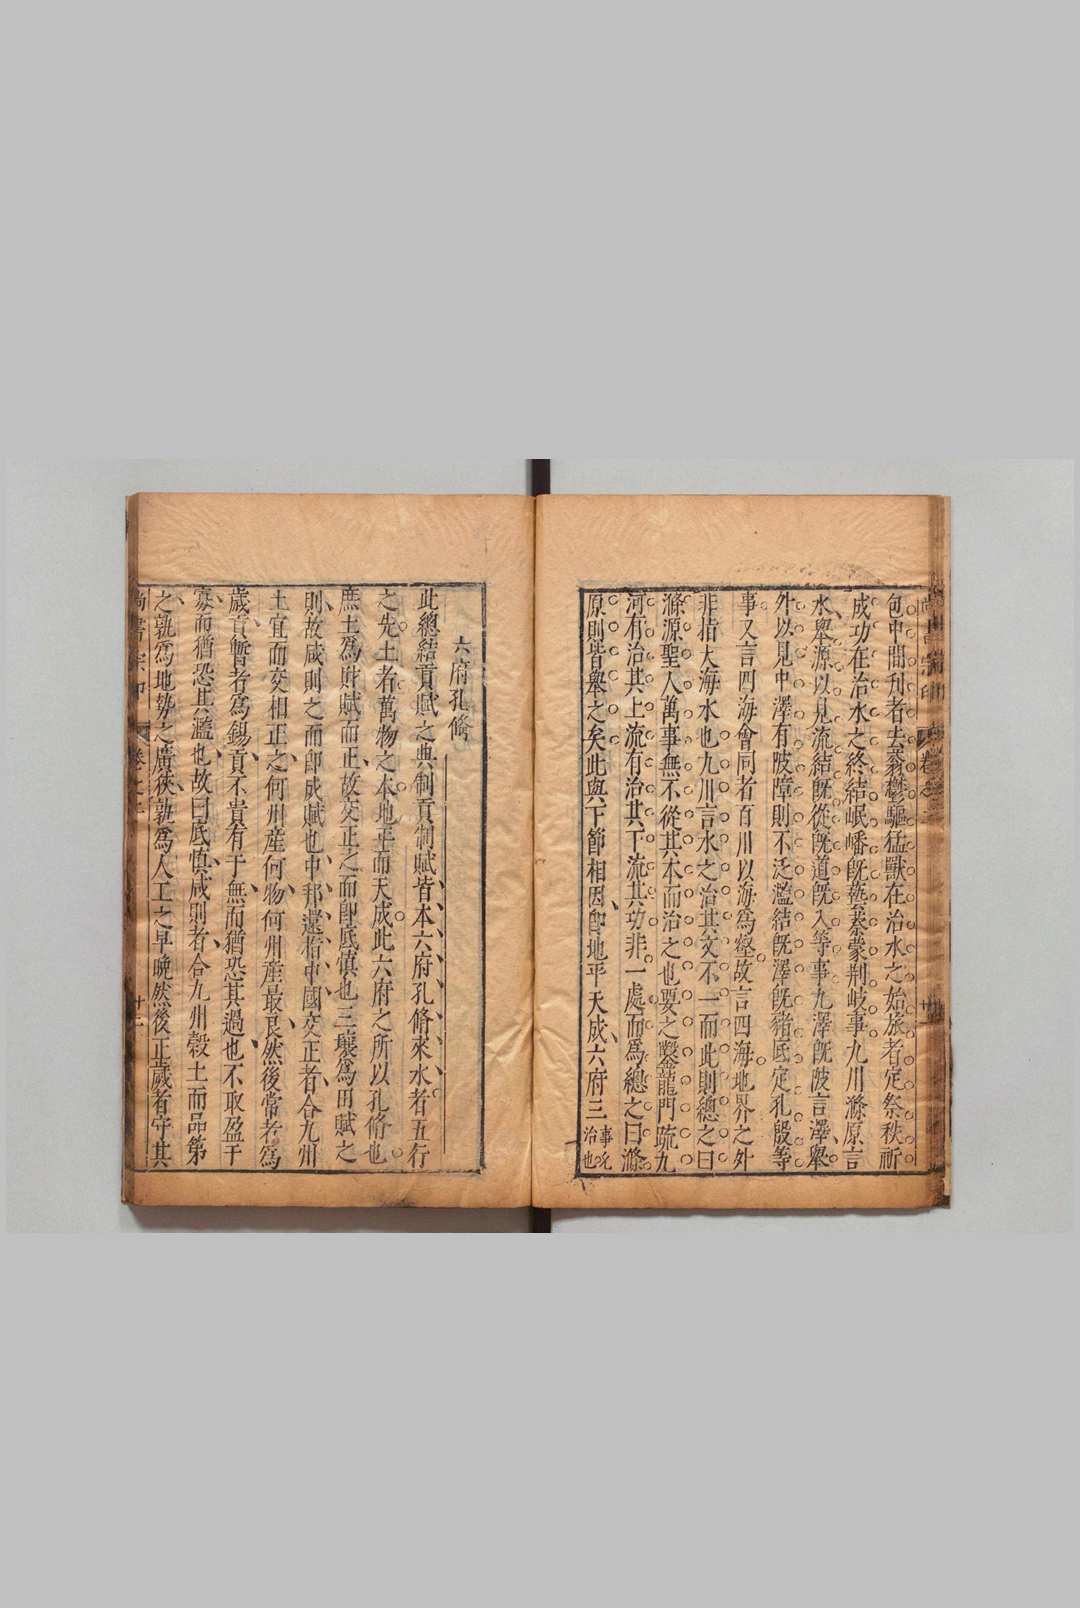 包中間刋者去蓊鬱驅猛獸在治水之始旅者定祭秩祈
成功在治水之終結岷嶓旣藝蔡蒙荆岐事九川滌原言
水舉源以見流結旣從旣道旣入等事九澤旣陂言澤舉
外以見中澤有陂障則不泛濫結旣澤旣豬底定孔殷等
事又言四海會同者百川以海爲壑故言四海地界之外
非指大海水也九川言水之治其文不一而此則總之曰
滌源聖人萬事無不從其本而治之也要之鑿龍門疏九
河有治其上流有治其下流其功非一處而爲總之曰滌
原則皆舉之矣此與下節相因卽地平天成六府三事允治也
六府孔脩
此總結貢賦之典制貢制賦皆本六府孔脩來水者五行
之先土者萬物之本地平而天成此六府之所以孔脩也
庶土爲財賦而正故交正之而卽底慎也三壤爲田賦之
則故咸則之而卽成賦也中邦還指中國交正者合九州
土宜而交相正之何州產何物何州產最良然後常者爲
歲貢暫者爲錫貢不貴有于無而猶恐其過也不取盈于
寡而猶恐其濫也故曰底慎咸則者合九州穀土而品第
之孰爲地勢之廣狹孰爲人工之早晚然後正歲者守其
尚書宗印 卷之二 十二